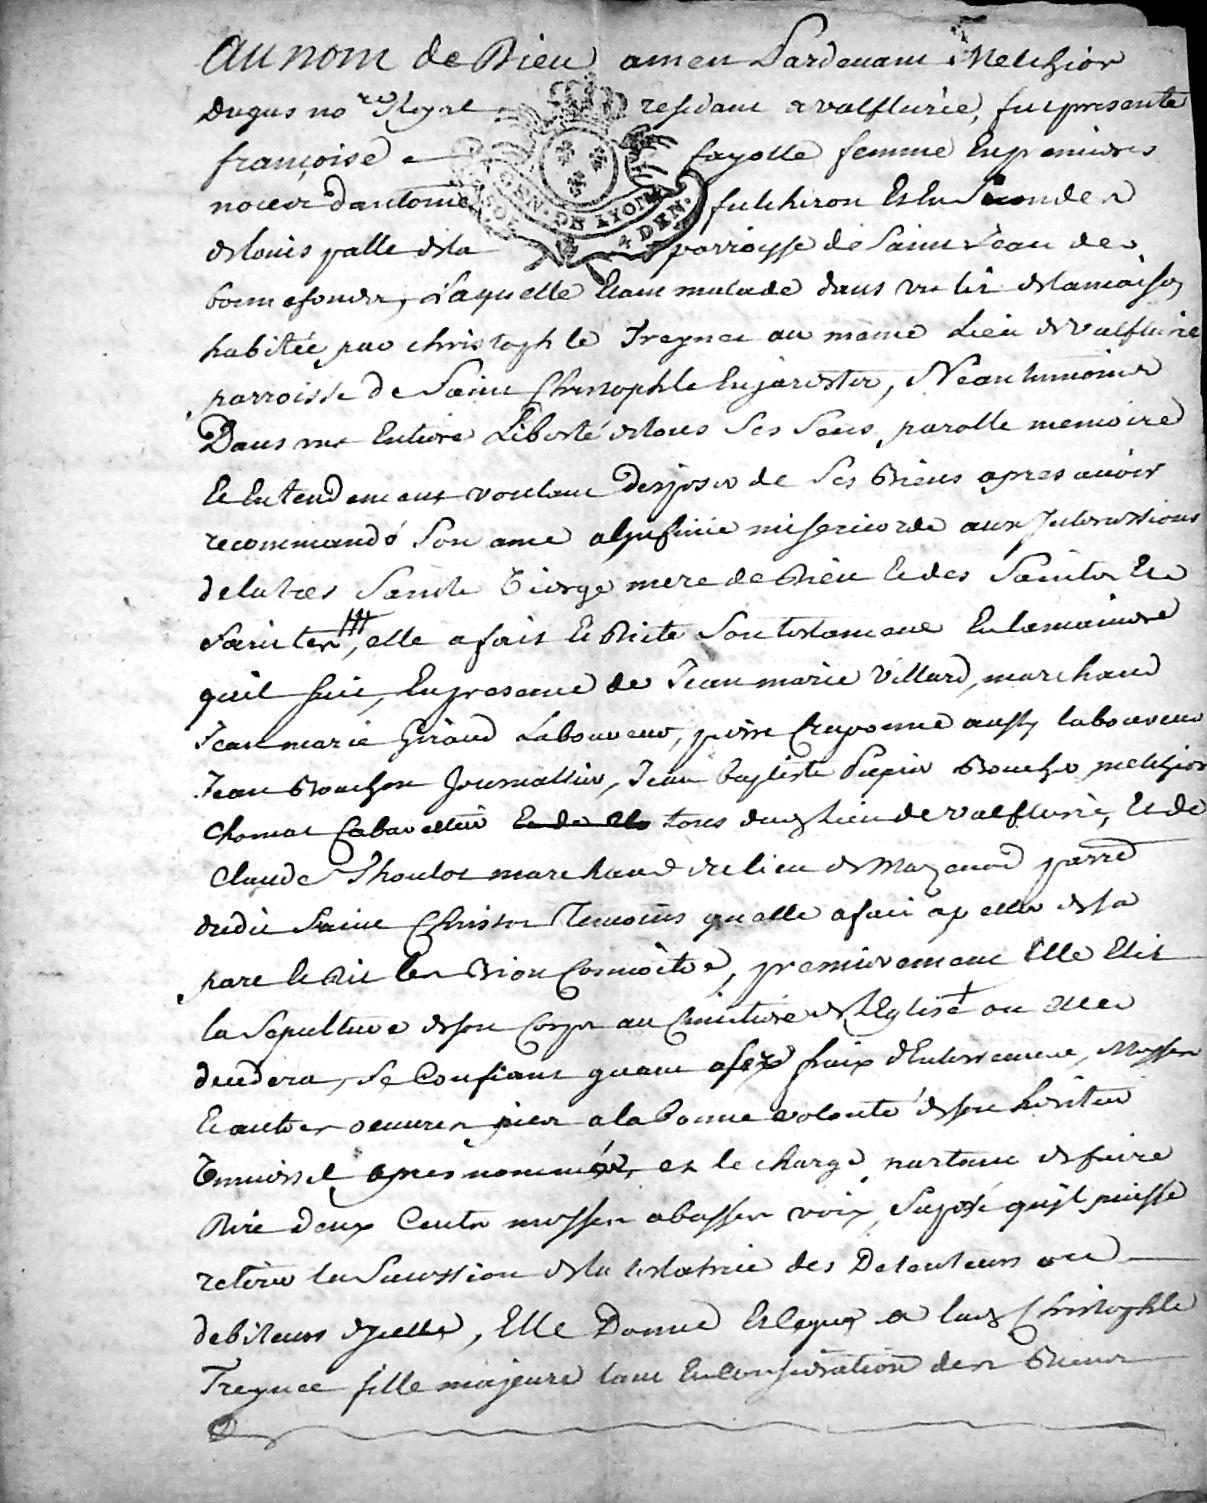 Au nom de Dieu amen Pardevant Melchior
Dugas no.re Royal residant a valfleurie, fut presente
françoise fayolle femme En premieres
noces d'antoine fulchiron Et En Secondes
de louis palle de la parroisse de Saint Jean de
GEN. DE LYON
4 DEN.
bonnefonds, Laquelle Etant malade dans un lit de la maison
habitée par christophle Treynet au meme Lieu de valfleurie
parroisse de Saint Christophle En jarester, Neantmoins
Dans une Entiere Liberté de tous Ses Sens, parolle memoire
Et Entendement voulant disposer de Ses Biens apres avoir
recommandé Son ame a l'infinie misericorde aux Intercessions
de la tres Sainte Vierge mere de Dieu Et des Saints Et
Saintes, elle a fait Et Dicté Son testament En la maniere
qu'il Suit, En presence de Jean marie Villard, marchand
Jean marie Giraud Laboureur, pierre Chaponne aussy laboureur
Jean Bouchon Journallier, Jean baptiste Papier Boucher, melchior
Chomat Cabarettier tous dudt lieu de valfleurie, Et de
Claude Thoulot marchand du lieu de Mazenod parre
dudit Saint Christo Temoins qu'elle a fait apeller de sa
part Et Dit les Bien Connoitre, premierement Elle Elit
la Sepulture de son Corps au Cimetiere de l'Eglise ou elle
decedera, Se Confiant quant a ses fraix d'Enterrement, Messes
Et autres oeuvres pies a la bonne volonté de son heritier
Universel apres nommé, et le charge partant de faire
Dire deux Cents messes a basses voix, Suposé qu'il puisse
retirer la Succession de la testatrice des Detenteurs ou
debiteurs d'icelle, Elle Donne Et legue a ladt Christophle
Treynet fille majeure tant En Consideration des Biens